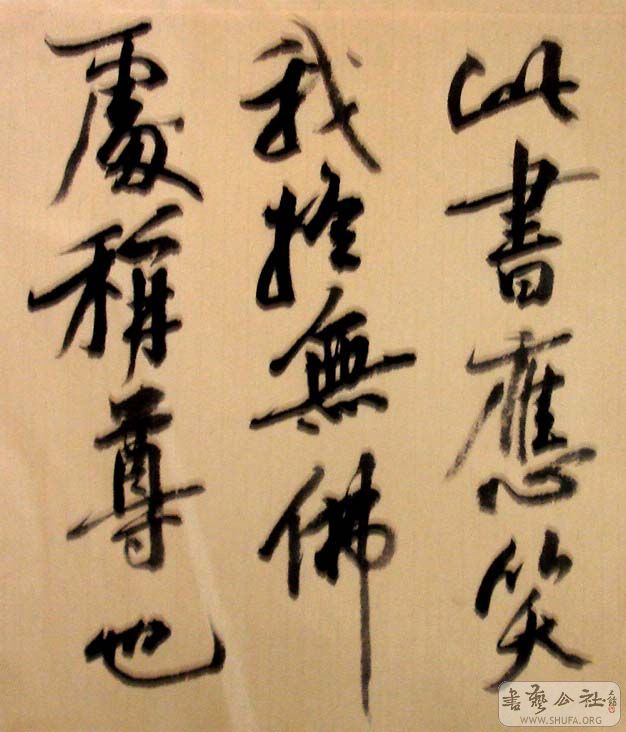 此書應笑
我於無佛
處稱尊也
書藝公社
WWW.SHUFA.ORG